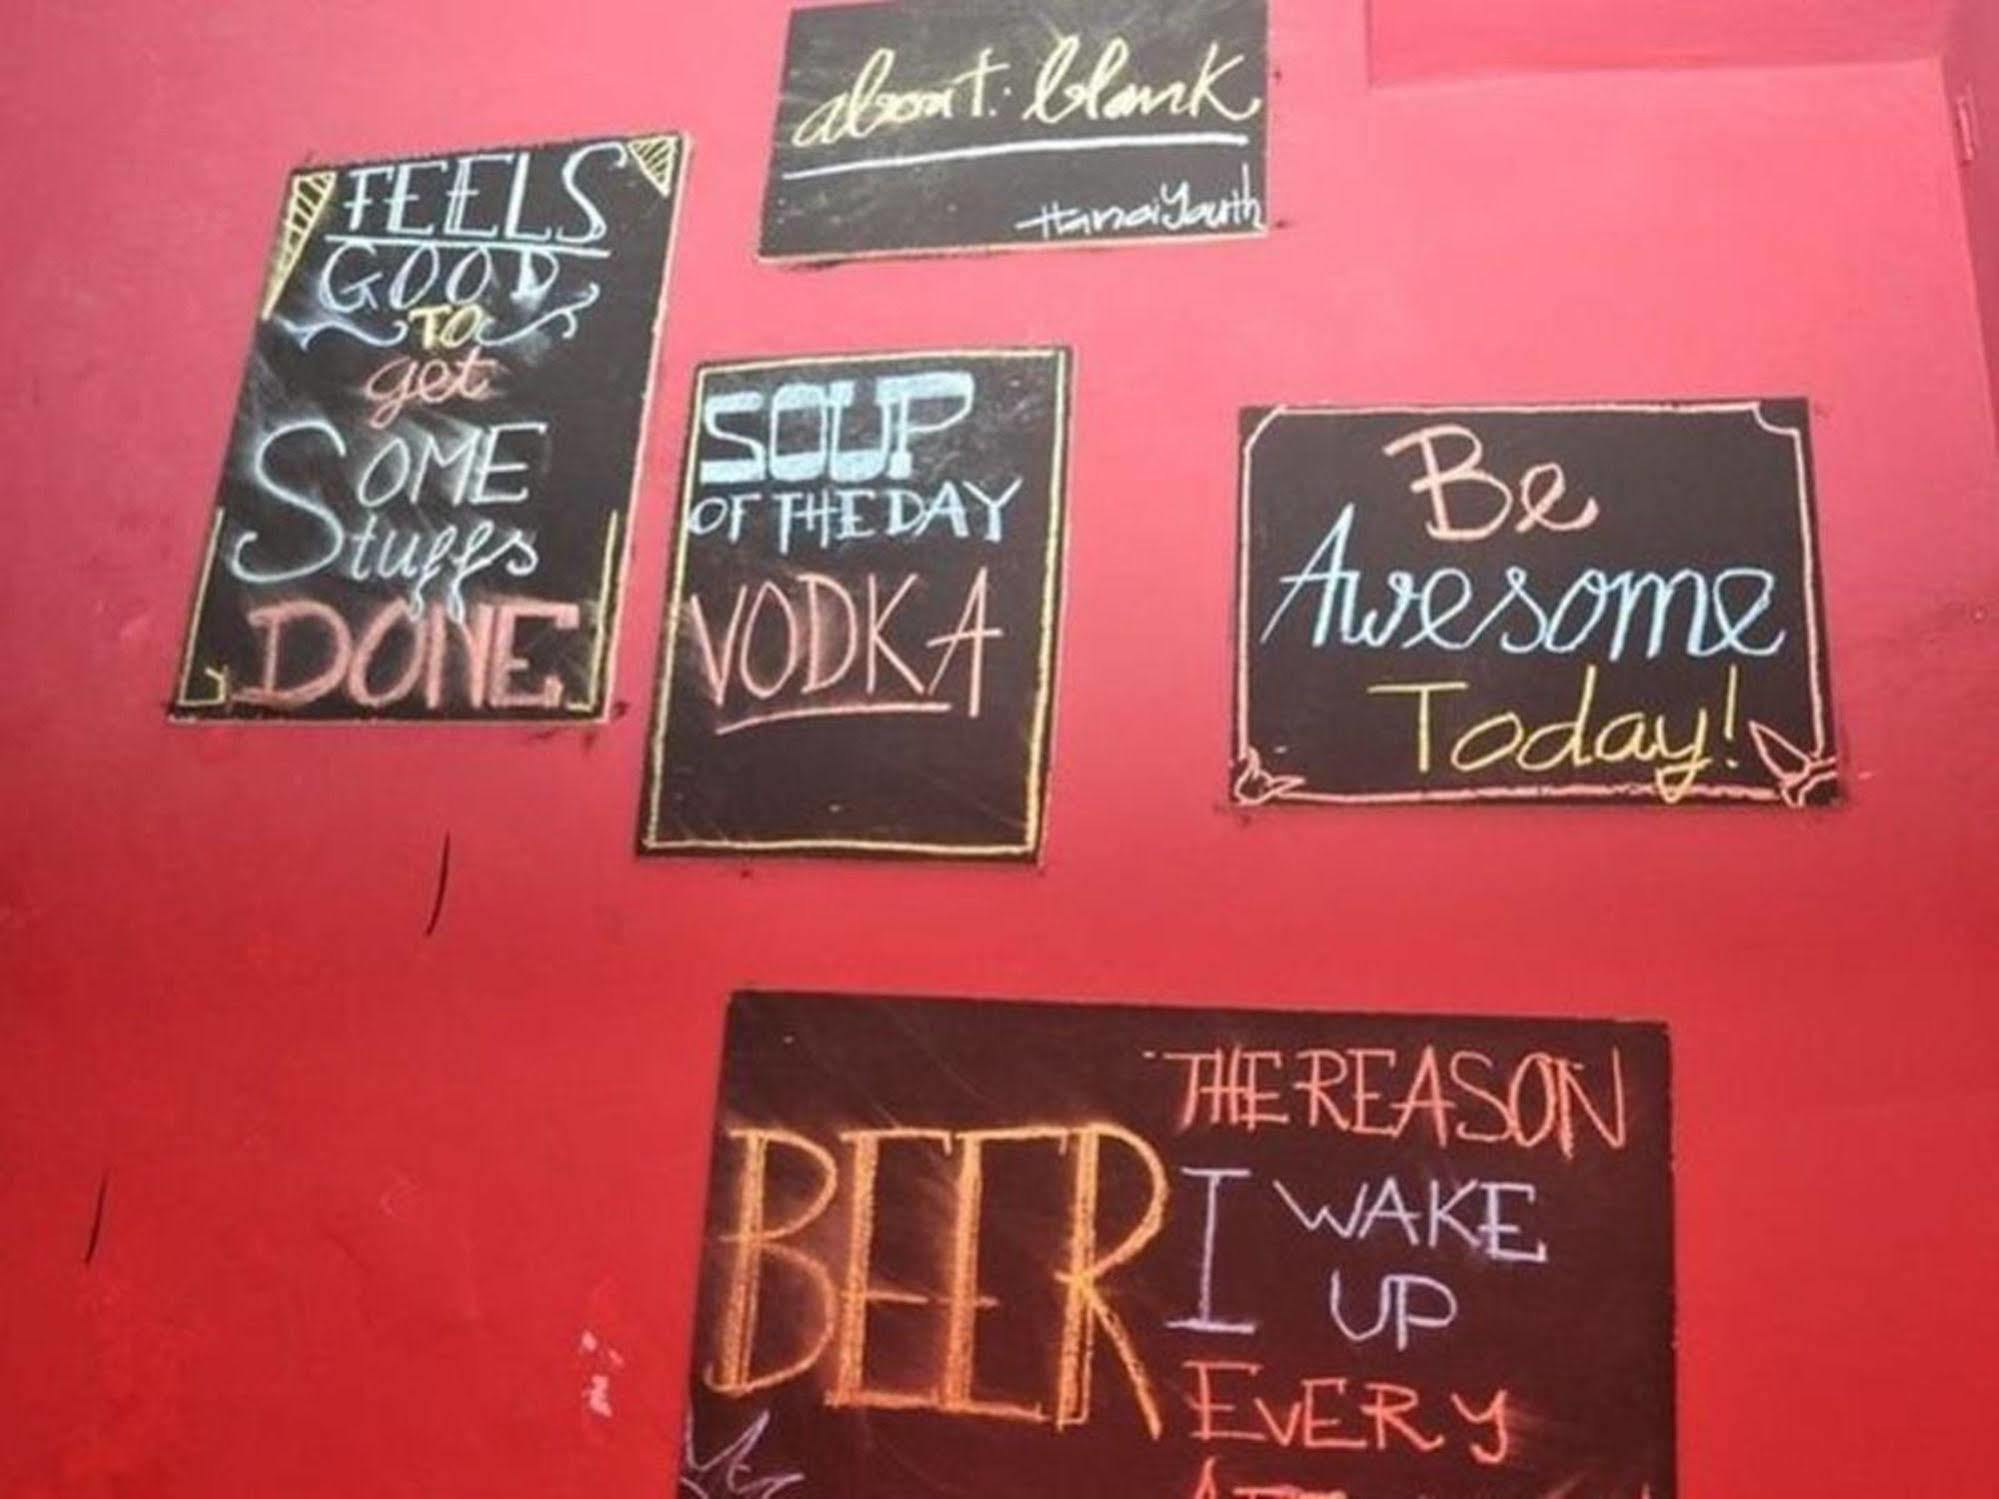 about: blank
HanoiYouth
FEELS
GOOD
TO
get
SOME
Stuffs
DONE
SOUP
OF THE DAY
VODKA
Be
Awesome
Today!
BEER
THE REASON
I WAKE
UP
EVERY